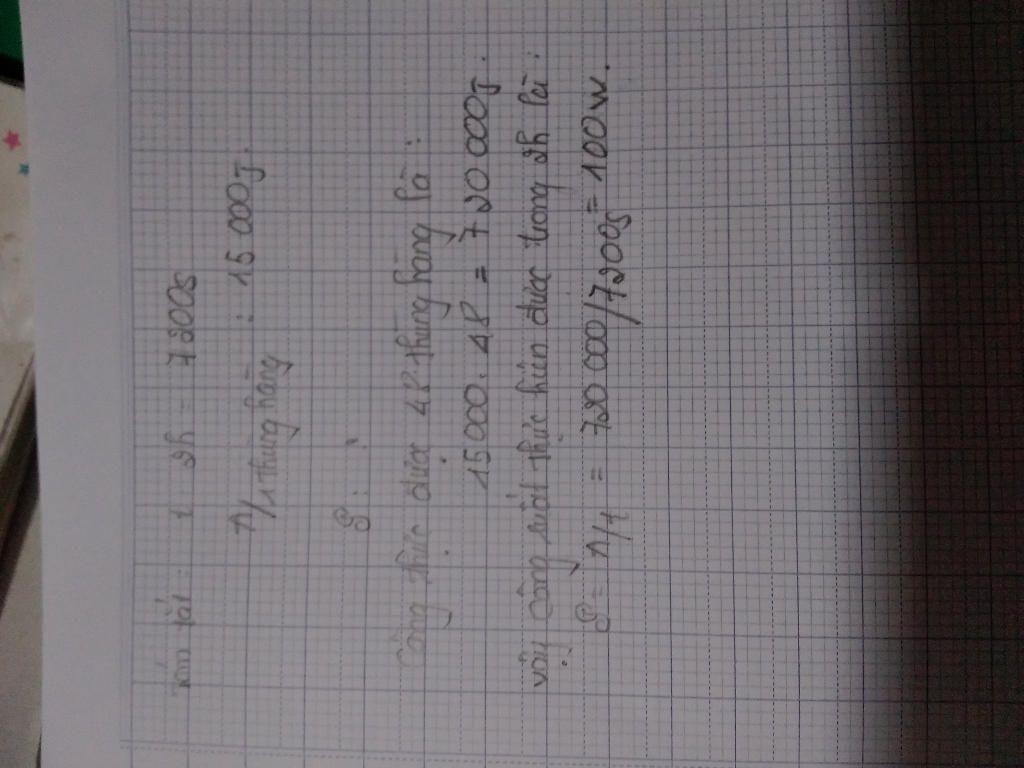 Tóm tắt = t 2h = 7200s
A/1 thùng hàng : 15 000J.
P : ?
Công thực được 48 thùng hàng là :
15 000. 48 = 720 000J.
vậy công suất thực hiện được trong 2h là :
P = A/t = 720 000/7200s = 100W.